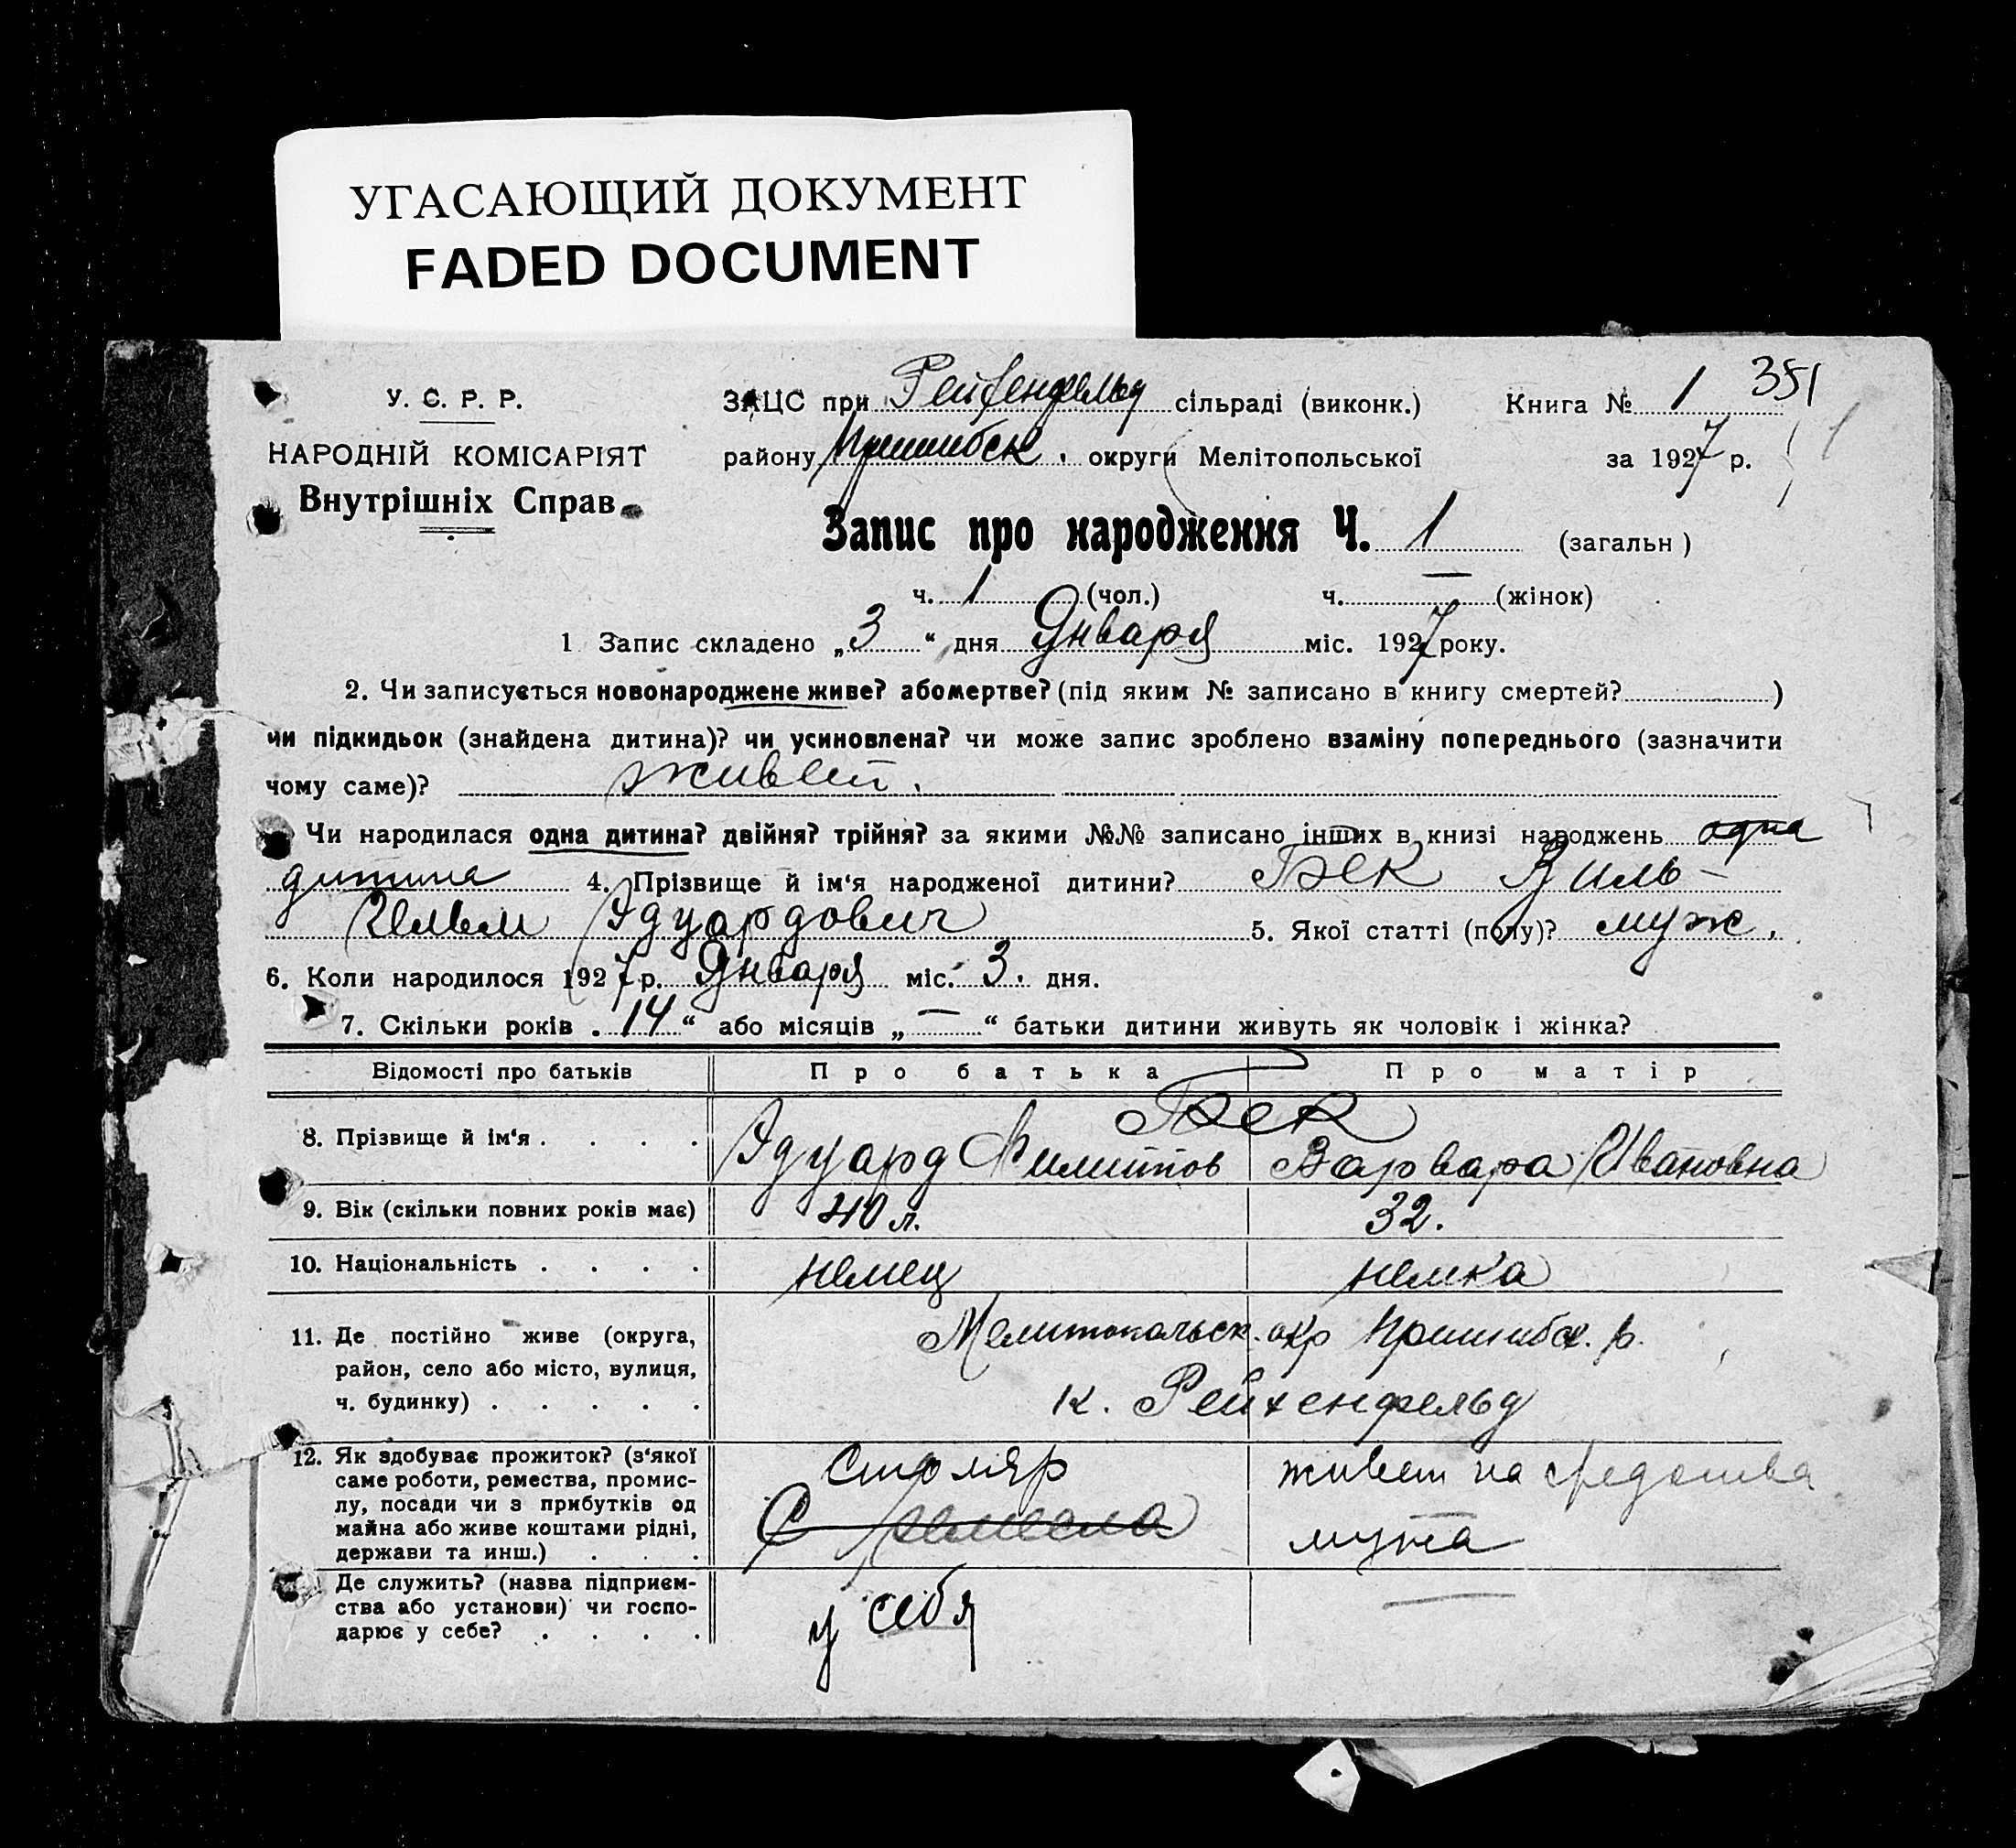 УГАСАЮЩИЙ ДОКУМЕНТ
FADED DOCUMENT
У. С. Р. Р.
НАРОДНІЙ КОМІСАРІЯТ
Внутрішніх Справ
ЗАЦС при Рейхенфельд сільраді (виконк.) Книга № 1 351
району Пришибск. округи Мелітопольської за 1927 р.
Запис про народження Ч. 1 (загальн)
ч. 1 (чол.) ч. — (жінок)
1 Запис складено „3“ дня Января міс. 1927 року.
2. Чи записується новонароджене живе? або мертве? (під яким № записано в книгу смертей? )
чи підкидьок (знайдена дитина)? чи усиновлена? чи може запис зроблено взаміну попереднього (зазначити
чому саме)? живой.
Чи народилася одна дитина? двійня? трійня? за якими №№ записано інших в книзі народжень одна
дитина 4. Прізвище й ім'я народженої дитини? Бек Виль-
гельм Эдуардович 5. Якої статті (полу)? муж.
6. Коли народилося 1927 р. Января міс. 3. дня.
7. Скільки років „14“ або місяців „—“ батьки дитини живуть як чоловік і жінка?
Відомості про батьків Про батька Про матір
8. Прізвище й ім'я . . . . Бек
Эдуард Филиппов Варвара Ивановна
9. Вік (скільки повних років має) 40 л. 32.
10. Національність . . . . немец немка
11. Де постійно живе (округа, Мелитопольск. окр Пришибск. р.
район, село або місто, вулиця,
ч. будинку) . . . . . к. Рейхенфельд
12. Як здобуває прожиток? (з'якої столяр живет на средства
саме роботи, ремества, промис-
лу, посади чи з прибутків од С ремесла мужа
майна або живе коштами рідні,
держави та инш.) . . .
Де служить? (назва підприєм-
ства або установи) чи госпо- у себя —
дарює у себе? . . . .